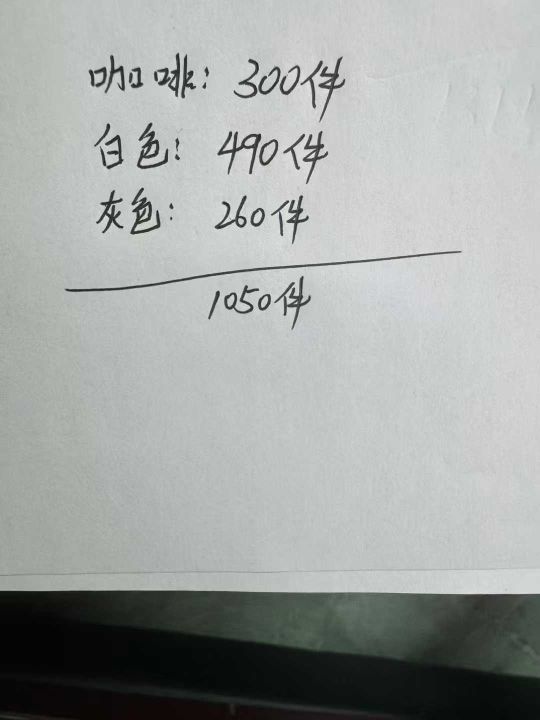 咖啡：300件
白色：490件
灰色：260件
1050件